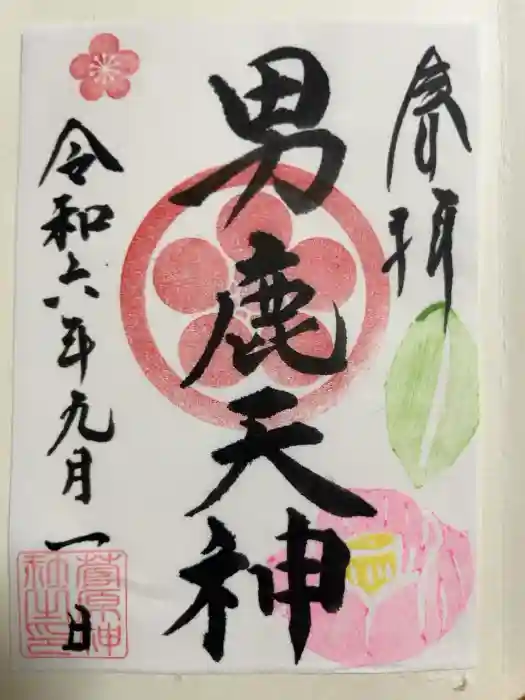 奉拝
男鹿天神
令和六年九月一日
菅原神社之印